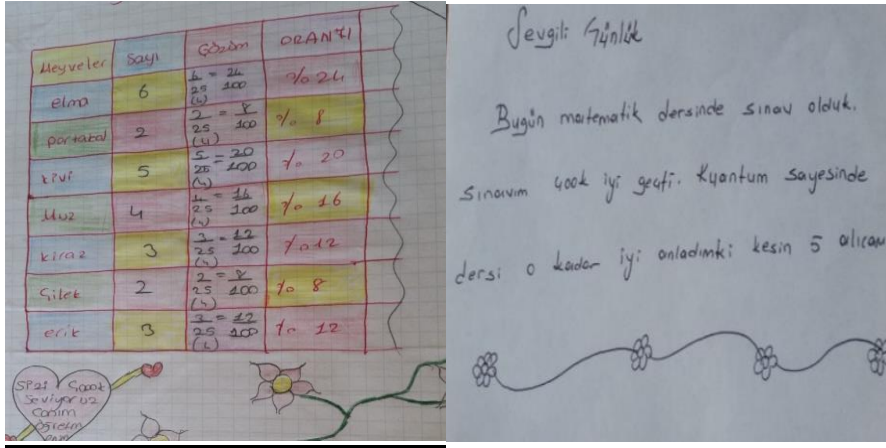 Meyveler Sayı Çözüm ORAN%1
elma 6 6/25 = 24/100 (4) % 24
portakal 2 2/25 = 8/100 (4) % 8
kivi 5 5/25 = 20/100 (4) % 20
Muz 4 4/25 = 16/100 (4) % 16
kiraz 3 3/25 = 12/100 (4) % 12
Çilek 2 2/25 = 8/100 (4) % 8
erik 3 3/25 = 12/100 % 12
Çoook
Seviyoruz
Canım
öğretm
Sevgili Günlük
Bugün matematik dersinde sınav olduk.
Sınavım çook iyi geçti. Kuantum sayesinde
dersi o kadar iyi anladımki kesin 5 alıcam